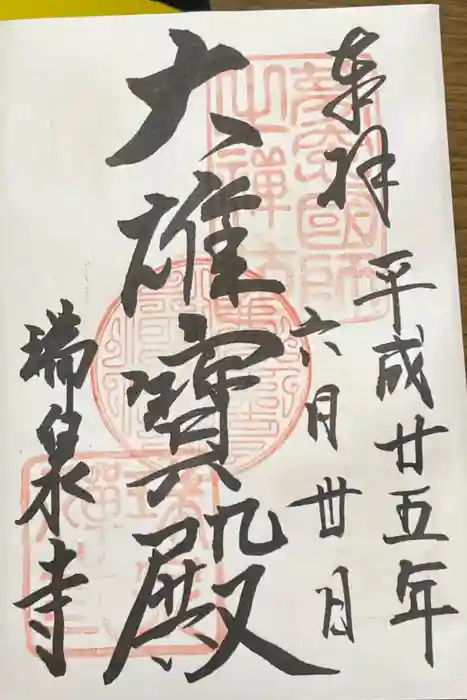 奉拝
平成廿五年
六月卅日
大雄寶殿
瑞泉寺